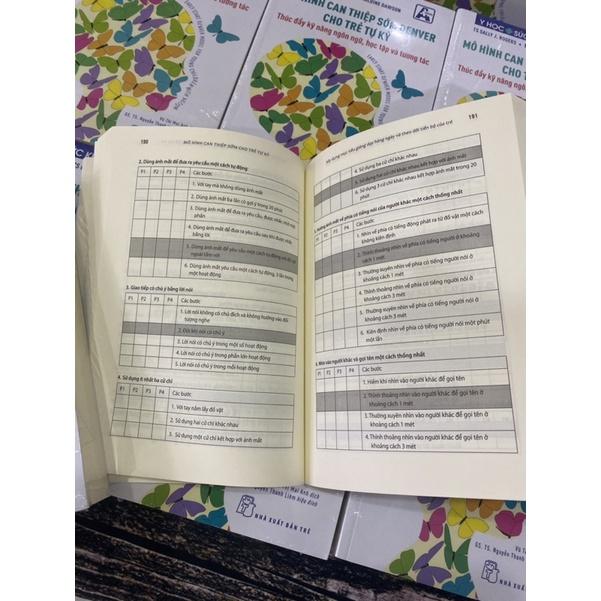 MÔ HÌNH CAN THIỆP SỚM DENVER
CHO TRẺ TỰ KỶ
Thúc đẩy kỹ năng ngôn ngữ, học tập và tương tác
Y HỌC SỨC
TS. SALLY J. ROGERS
MÔ HÌNH CAN
CHO T
Thúc đẩy kỹ năng ng
190 MÔ HÌNH CAN THIỆP SỚM CHO TRẺ TỰ KỶ
2. Dùng ánh mắt để đưa ra yêu cầu một cách tự động
P1 P2 P3 P4 Các bước
1. Với tay mà không dùng ánh mắt
2. Dùng ánh mắt ba lần có gợi ý trong 20 phút
3. Dùng ánh mắt để đưa ra yêu cầu, được nhắc nhở một phần
4. Dùng ánh mắt để đưa ra yêu cầu sau khi được nhắc bằng lời
5. Dùng ánh mắt để yêu cầu một cách tự động với đồ vật ngoài tầm với
6. Dùng ánh mắt yêu cầu một cách tự động, 3 lần trong một hoạt động
3. Giao tiếp có chủ ý bằng lời nói
P1 P2 P3 P4 Các bước
1. Lời nói không có chủ đích và không hướng vào đối tượng nghe
2. Đôi khi nói có chủ ý
3. Lời nói có chủ ý trong một số hoạt động
4. Lời nói có chủ ý trong phần lớn hoạt động
5. Lời nói có chủ ý trong mỗi hoạt động
4. Sử dụng ít nhất ba cử chỉ
P1 P2 P3 P4 Các bước
1. Với tay nắm lấy đồ vật
2. Sử dụng hai cử chỉ khác nhau
3. Sử dụng một cử chỉ kết hợp với ánh mắt
Xây dựng mục tiêu giảng dạy hàng ngày và theo dõi tiến bộ của trẻ 191
4. Sử dụng ba cử chỉ khác nhau
5. Sử dụng hai cử chỉ khác nhau kết hợp với ánh mắt
6. Sử dụng 3 cử chỉ khác nhau kết hợp với ánh mắt trong 20 phút
5. Hướng ánh mắt về phía có tiếng nói của người khác một cách thống nhất
P1 P2 P3 P4 Các bước
1. Nhìn về phía có tiếng động phát ra từ đồ vật một cách không kiên định
2. Thỉnh thoảng nhìn về phía có tiếng người nói ở khoảng cách 1 mét
3. Thường xuyên nhìn về phía có tiếng người nói ở khoảng cách 1 mét
4. Thỉnh thoảng nhìn về phía có tiếng người nói ở khoảng cách 3 mét
5. Thường xuyên nhìn về phía có tiếng người nói ở khoảng cách 3 mét
6. Kiên định nhìn về phía có tiếng người nói một phút một lần
6. Nhìn vào người khác và gọi tên một cách thống nhất
P1 P2 P3 P4 Các bước
1. Hiếm khi nhìn vào người khác để gọi tên
2. Thỉnh thoảng nhìn vào người khác để gọi tên ở khoảng cách 1 mét
3. Thường xuyên nhìn vào người khác để gọi tên ở khoảng cách 1 mét
4. Thỉnh thoảng nhìn vào người khác để gọi tên ở khoảng cách 3 mét
Mai Anh dịch
Nguyễn Thanh Liêm hiệu đính
NHÀ XUẤT BẢN TRẺ
GS. TS. Nguyễn Thanh
NHÀ XUẤT